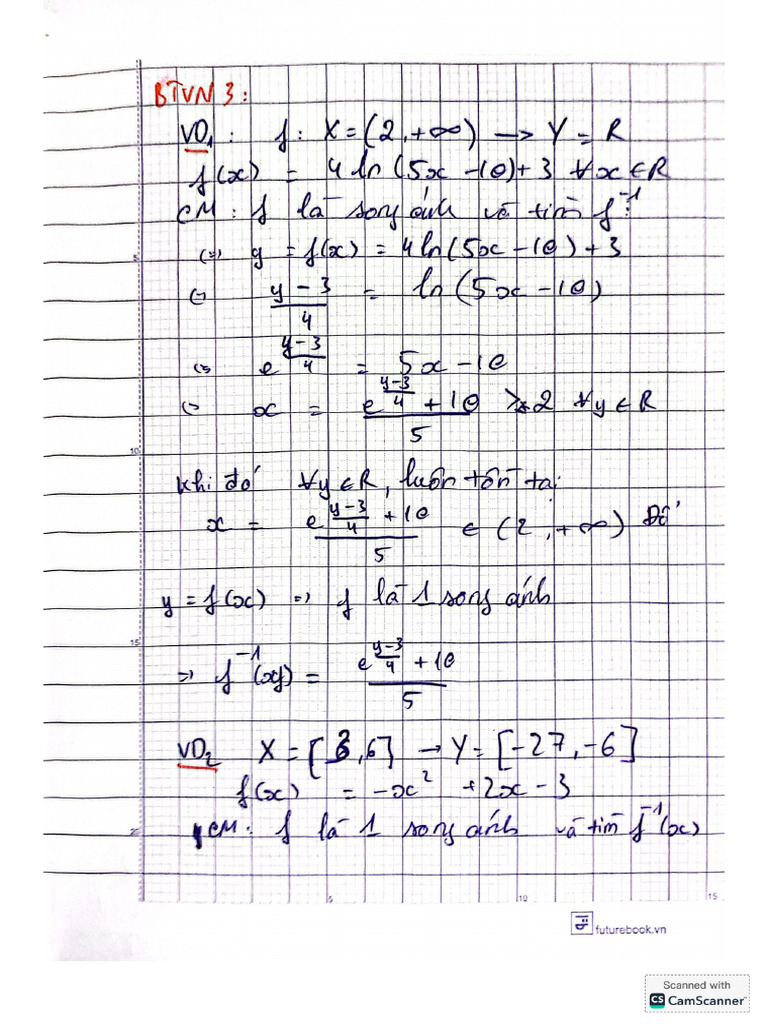 BTVN 3:
VD1: f: X = (2, +∞) → Y = R
f(x) = 4 ln (5x - 10) + 3 ∀x ∈ R
CM: f là song ánh và tìm f⁻¹?
(=) y = f(x) = 4 ln(5x - 10) + 3
(=) (y - 3)/4 = ln (5x - 10)
(=) e^((y-3)/4) = 5x - 10
(=) x = (e^((y-3)/4) + 10)/5 > 2 ∀y ∈ R
Khi đó ∀y ∈ R, luôn tồn tại
x = (e^((y-3)/4) + 10)/5 ∈ (2, +∞) Để
y = f(x) => f là 1 song ánh
=> f⁻¹(y) = (e^((y-3)/4) + 10)/5
VD2 X = [3, 6] → Y = [-27, -6]
f(x) = -x² + 2x - 3
CM: f là 1 song ánh và tìm f⁻¹(x)
5
10
15
20
5
10
15
futurebook.vn
Scanned with
CS CamScanner